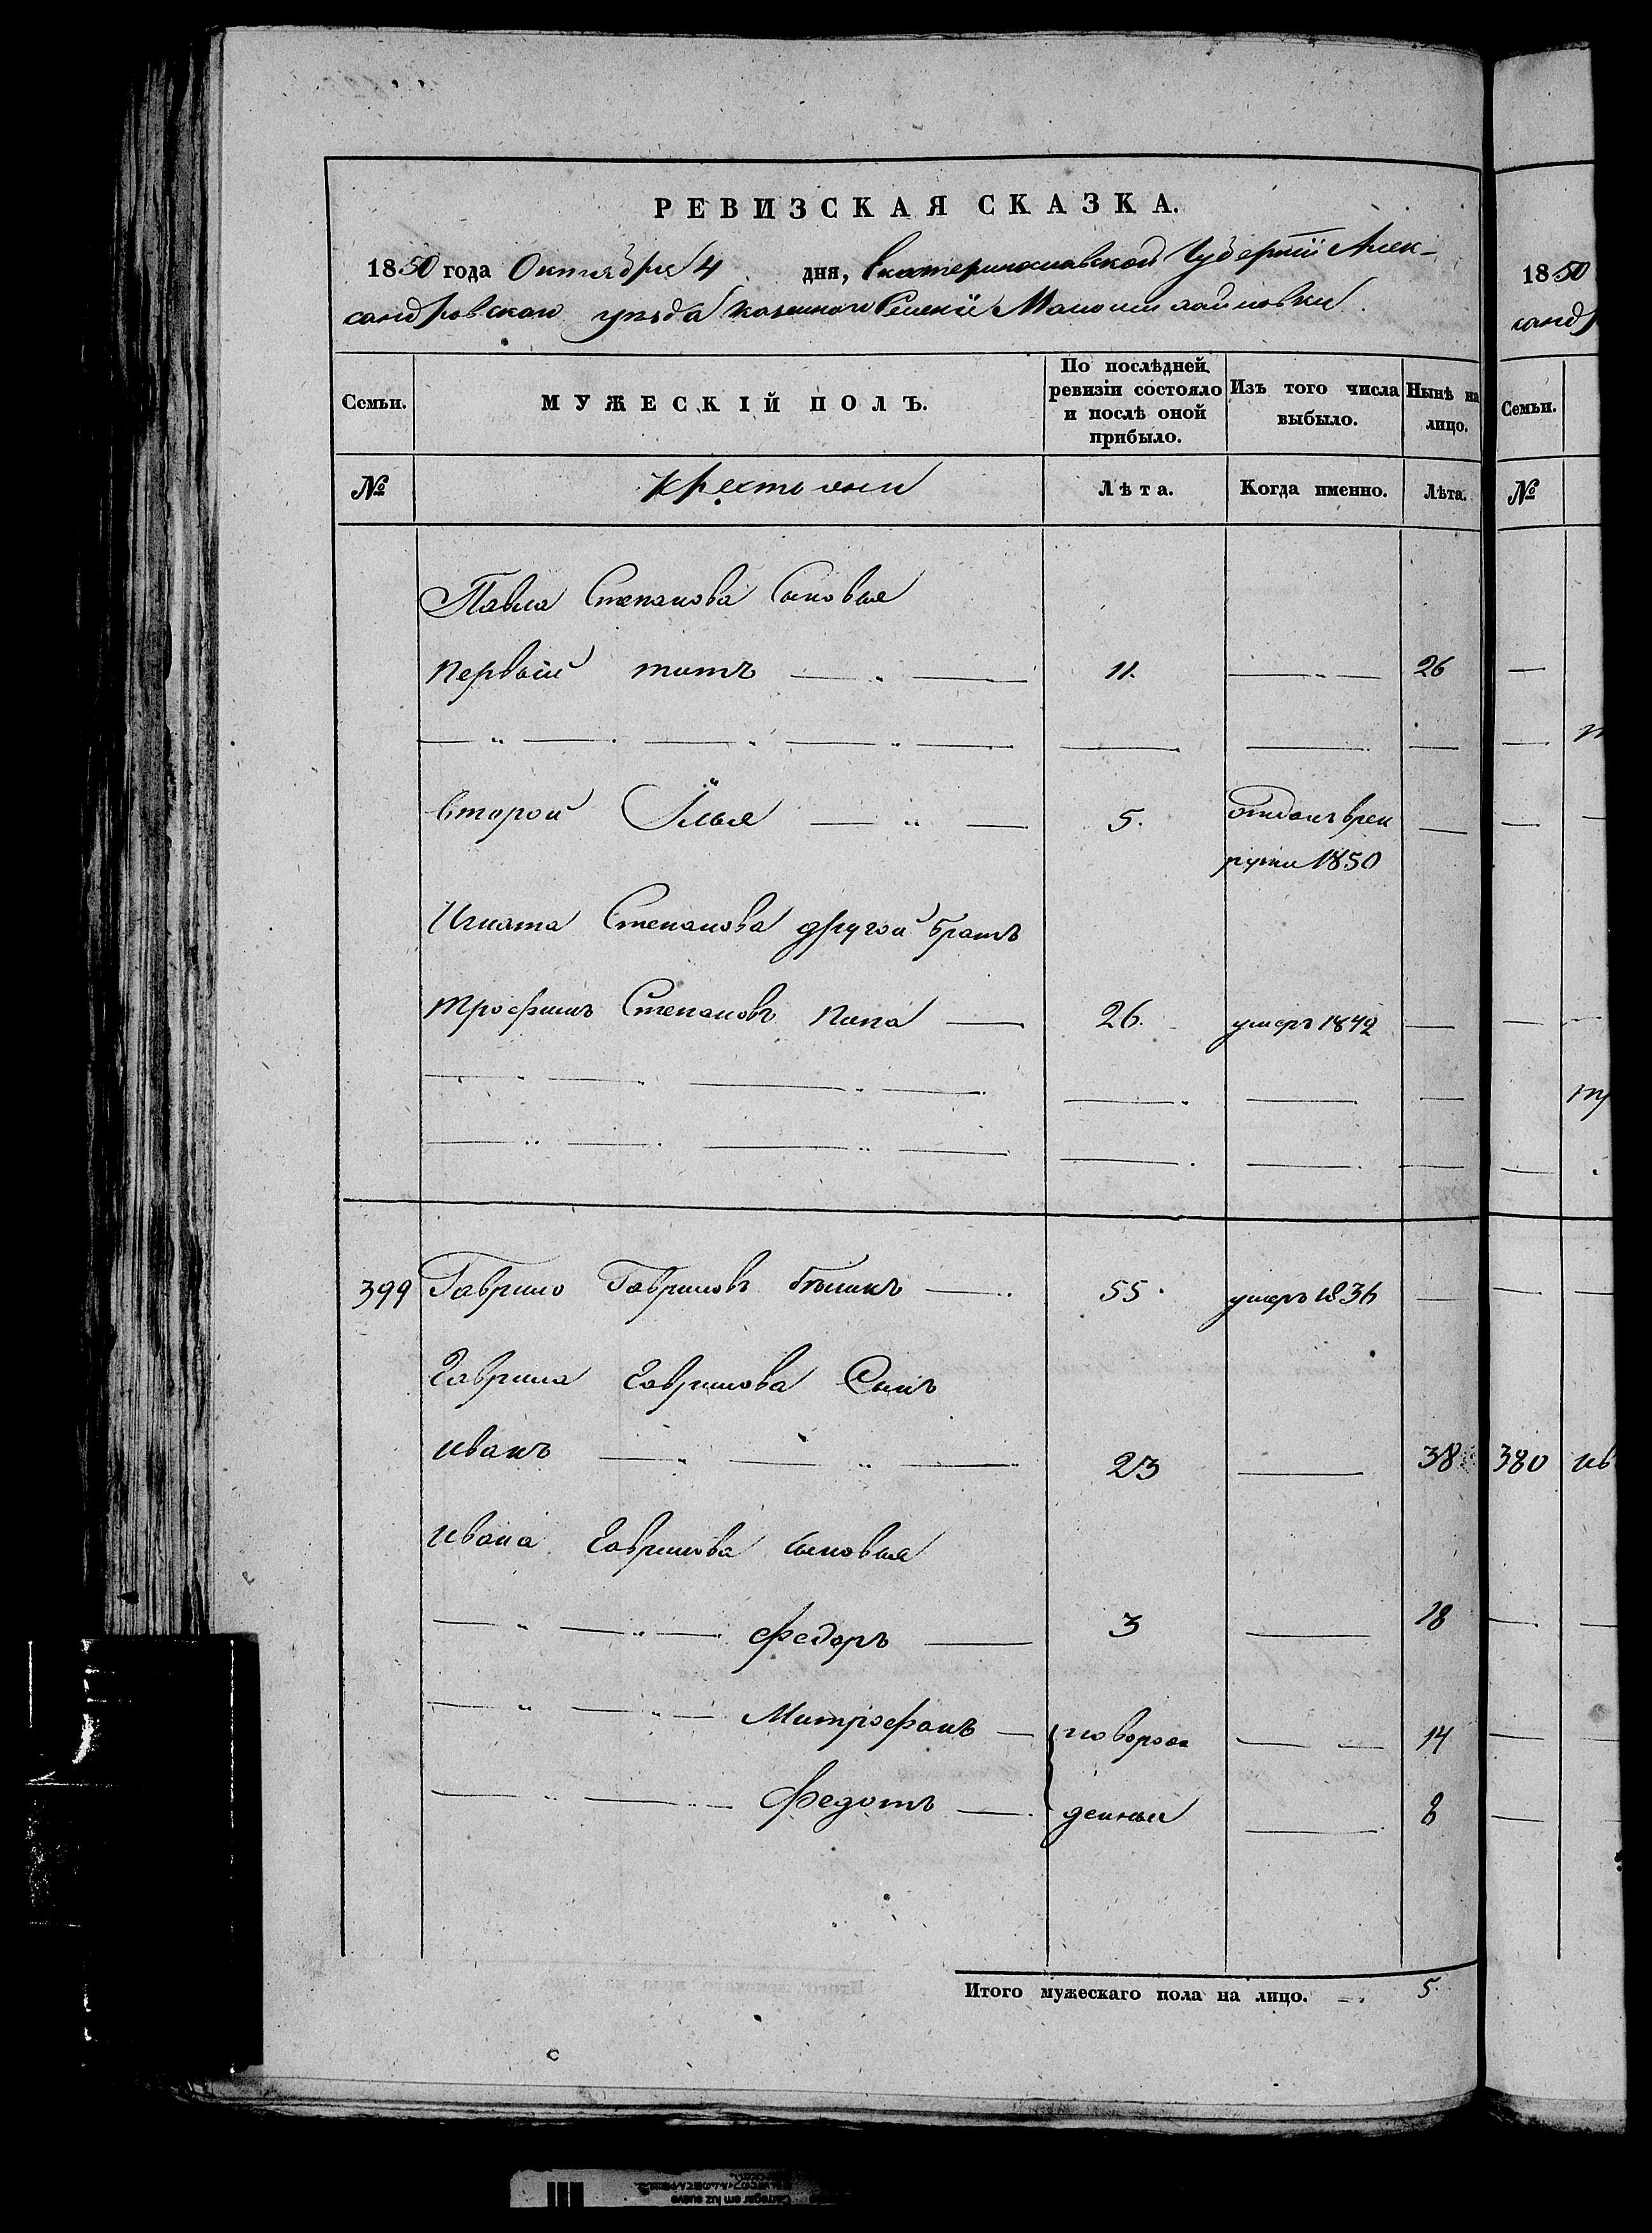 РЕВИЗСКАЯ СКАЗКА.
1850 года Октября 4 дня, Екатеринославской Губернии Алек-
сандровскаго уезда казеннаго Селения Маломихайловки
Семьи. МУЖЕСКІЙ ПОЛЪ. По послѣдней ревизіи состояло и послѣ оной прибыло. Изъ того числа выбыло. Нынѣ на лицо.
№ крестьяни Лѣта. Когда именно. Лѣта.
Павла Степанова Сыновья
первый титъ 11. 26
второй Илья 5. отданъ врек
руты 1850
Игната Степанова другой братъ
трофимъ Степановъ 26. умеръ 1842
399 Гаврило Гавриловъ 55. умеръ 1836
Гаврила Гаврилова Сынъ
иванъ 23 38
ивана Гаврилова сыновья
федоръ 3 18
Митрофанъ новорож 14
Федотъ денныи 8
Итого мужескаго пола на лицо. 5.
1850
санд
Семьи.
№
380 ив